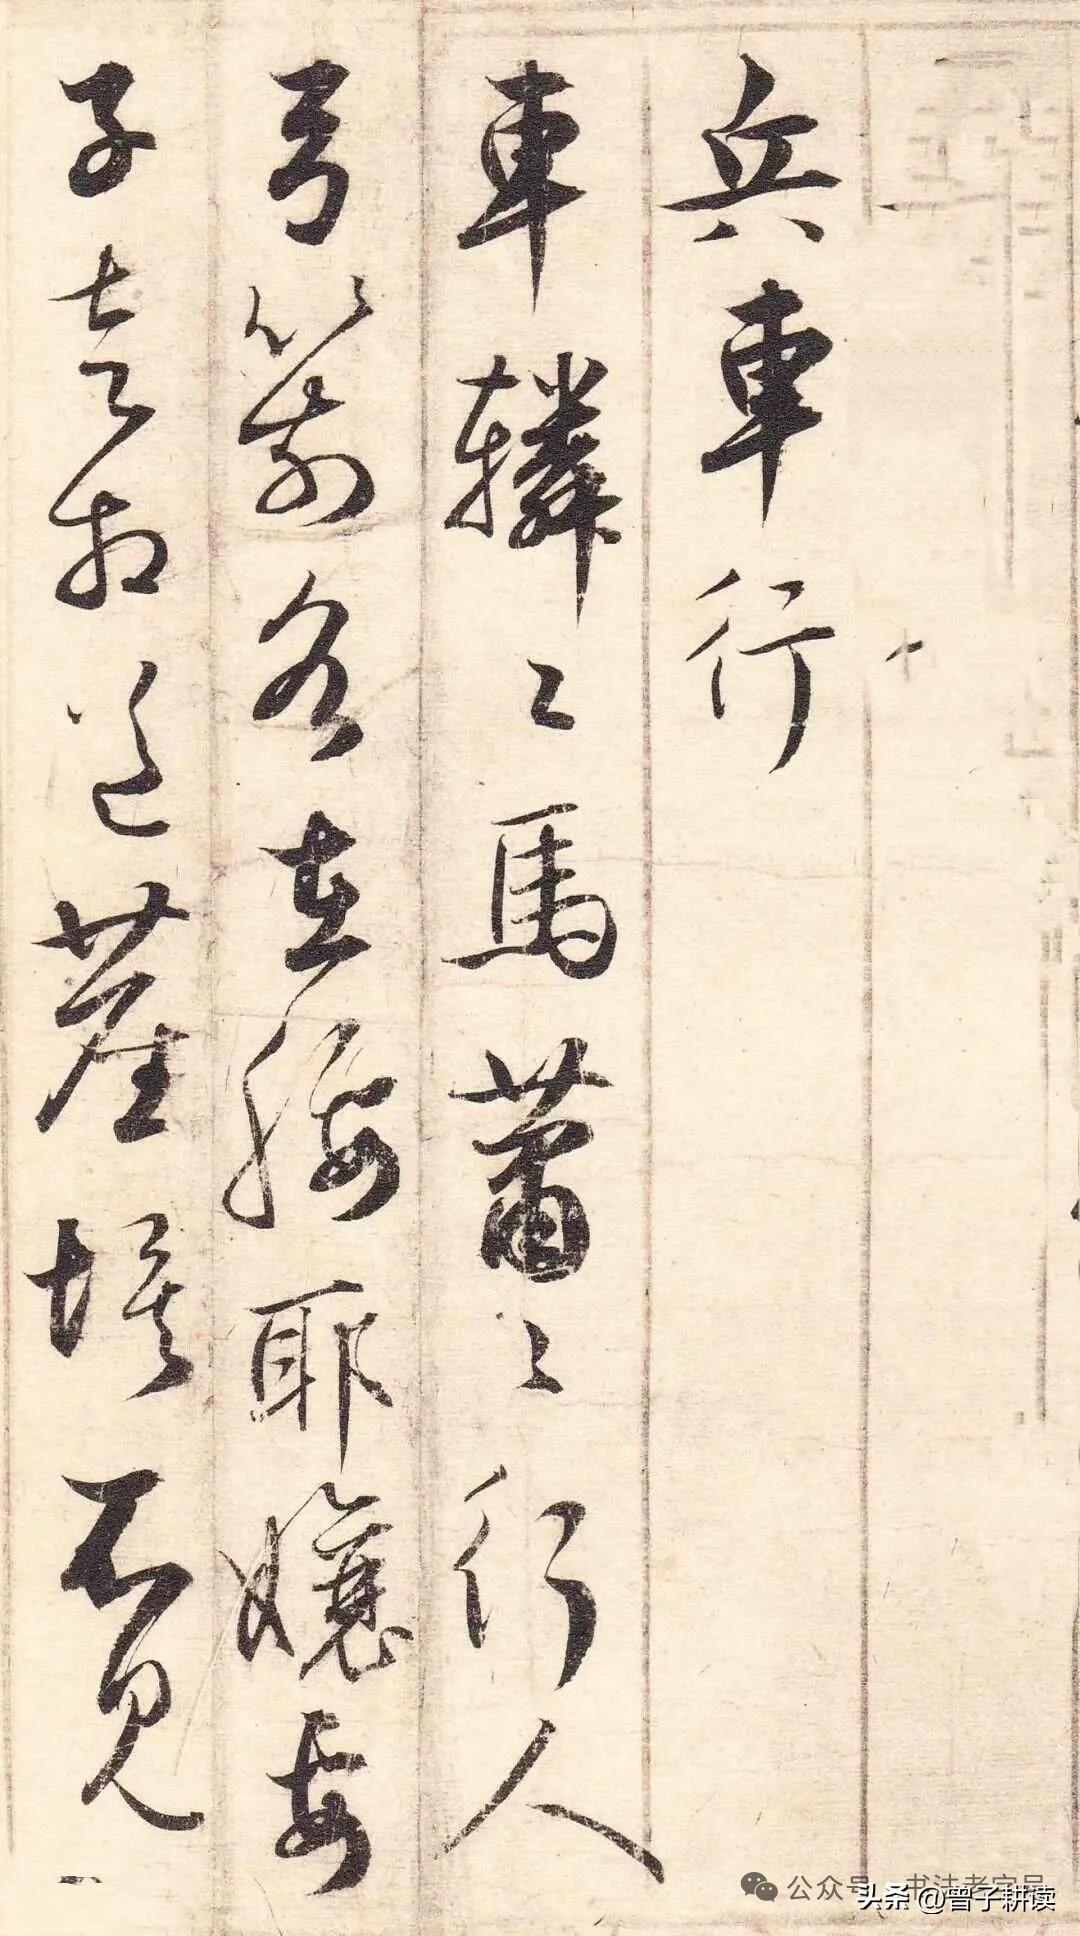 兵車行
車轔〻馬蕭〻行人
弓箭各在腰耶孃妻
子走相送塵埃不見
公众号
头条 @曾子耕读